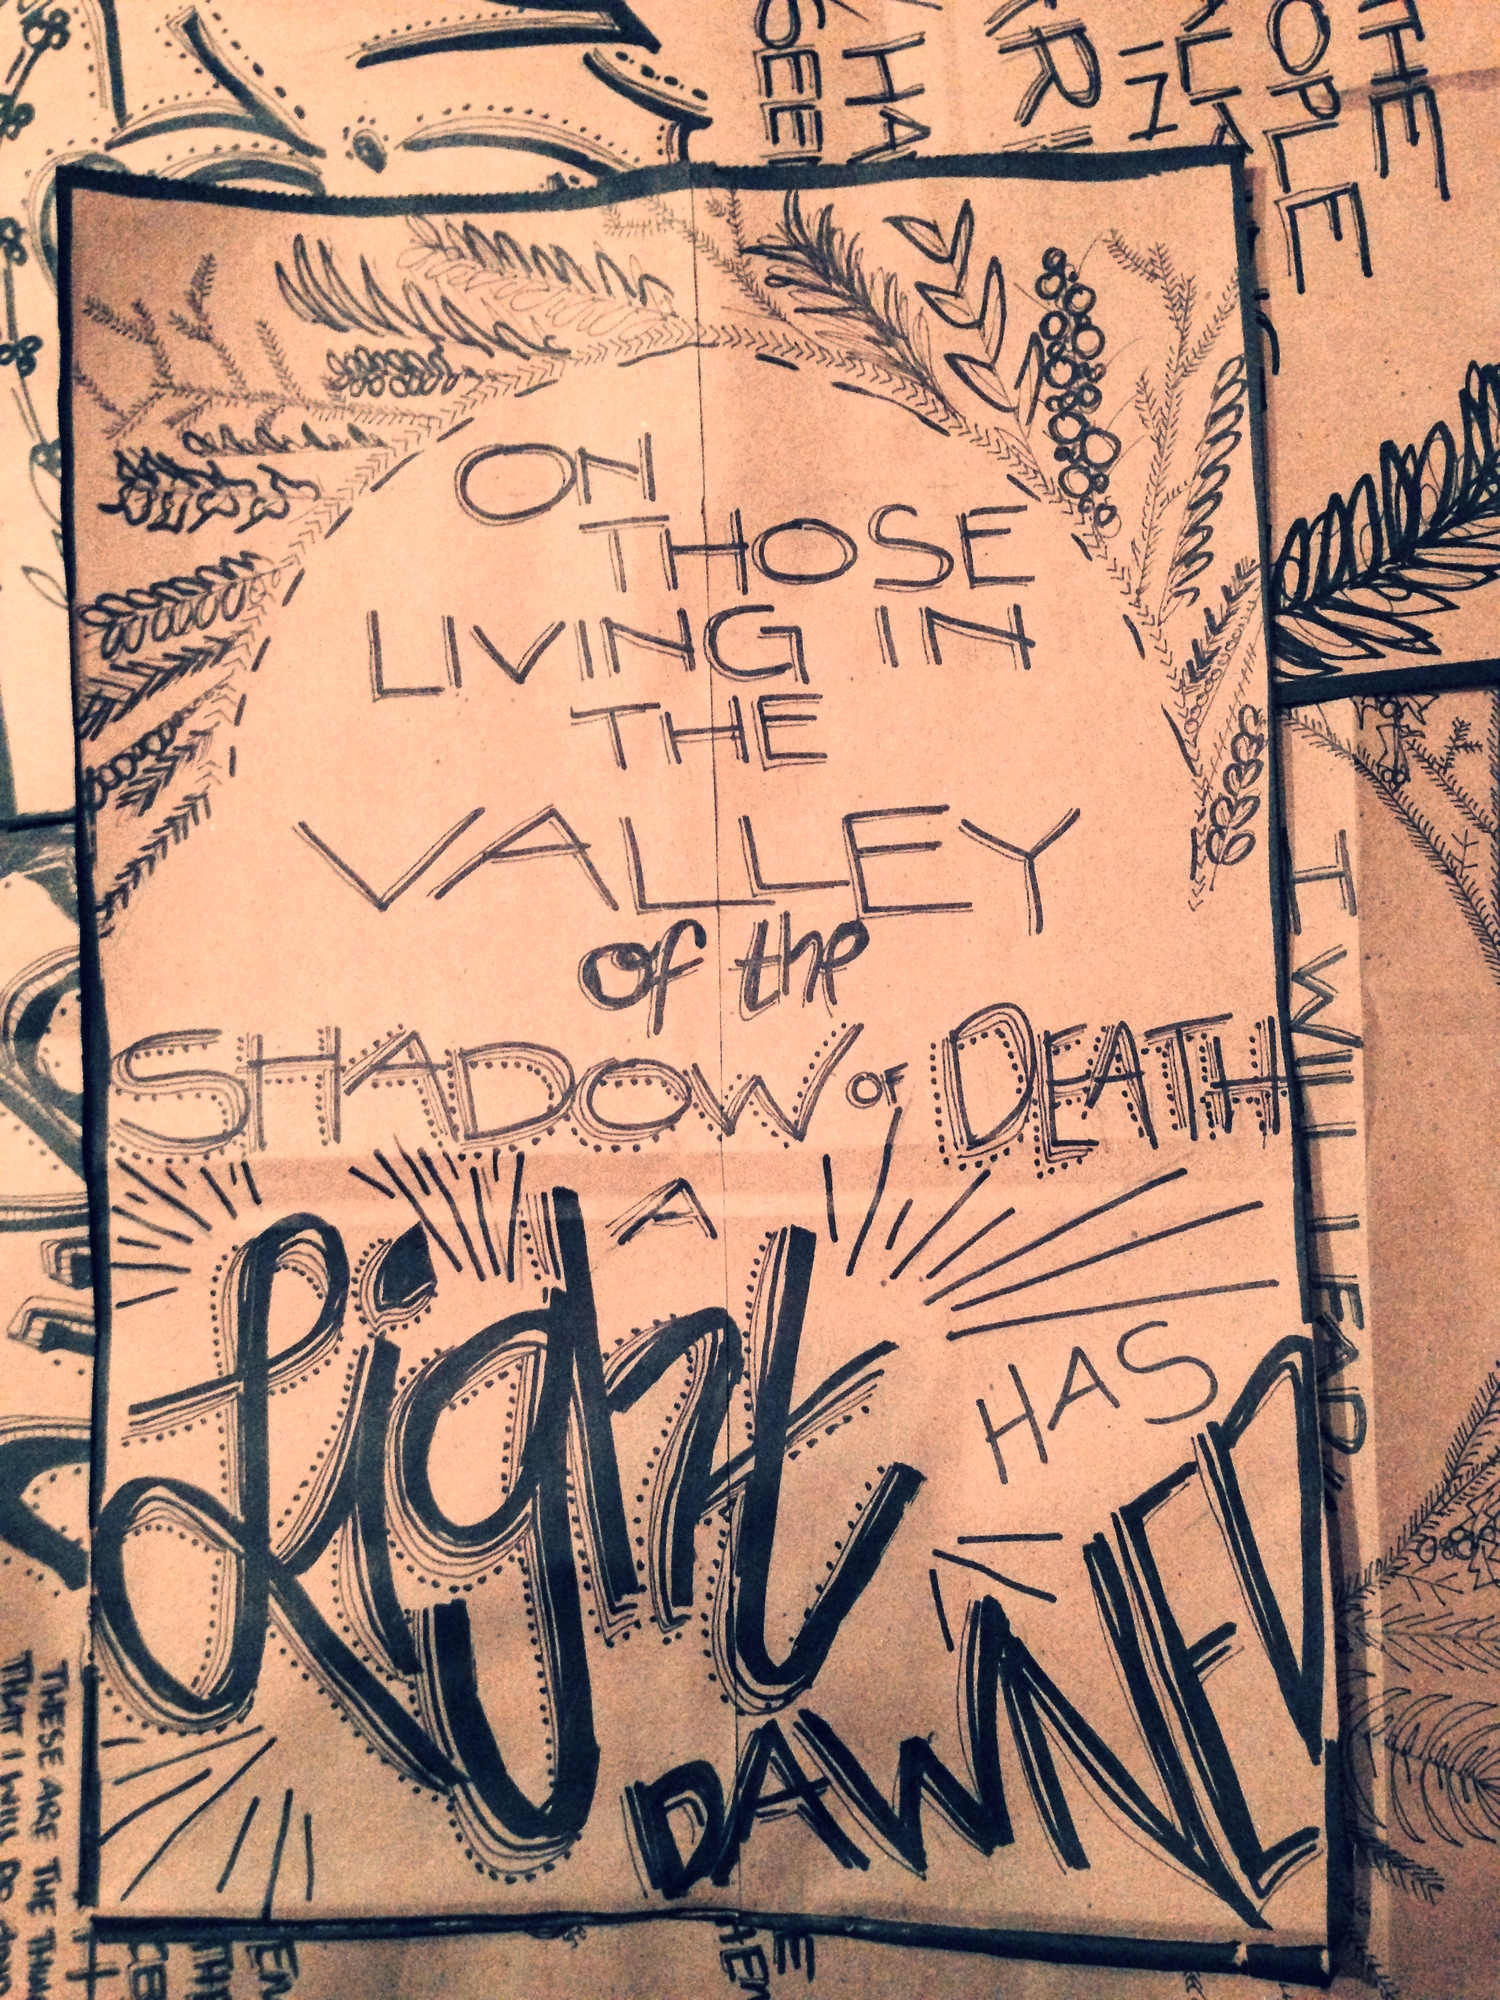 ON
THOSE
LIVING IN
THE
VALLEY
of the
SHADOW OF DEATH
A
Light
HAS
DAWNED
THE
IN
I WILL FEAR
THESE ARE THE
THAT I WILL